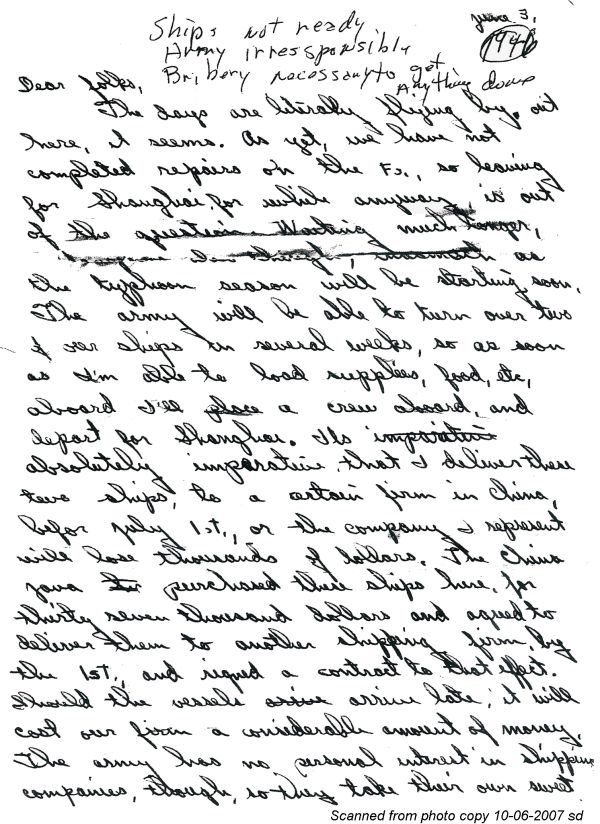 Ships not ready
Army irresponsible
Bribery necessary to get
Anything done
June 3,
1946
Dear folks,
The days are literally flying by, out
here, it seems. As yet, we have not
completed repairs on the Fs., so leaving
for Shanghai, for while anyway, is out
of the question. Waiting much longer,
, inasmuch as
the typhoon season will be starting soon.
The army will be able to turn over two
of our ships in several weeks, so as soon
as I'm able to load supplies, food, etc,
aboard I'll place a crew aboard, and
depart for Shanghai. Its
absolutely imparative that I deliver these
two ships, to a certain firm in China,
befor July 1st., or the company I represent
will lose thousands of dollars. The China
Java purchased these ships here, for
thirty seven thousand dollars and agreed to
deliver them to another shipping firm by
the 1st., and signed a contract to that effect.
Should the vessels arrive late, it will
cost our firm a considerable amount of money.
The army has no personal interest in shipping
companies, though, so they take their own sweet
Scanned from photo copy 10-06-2007 sd